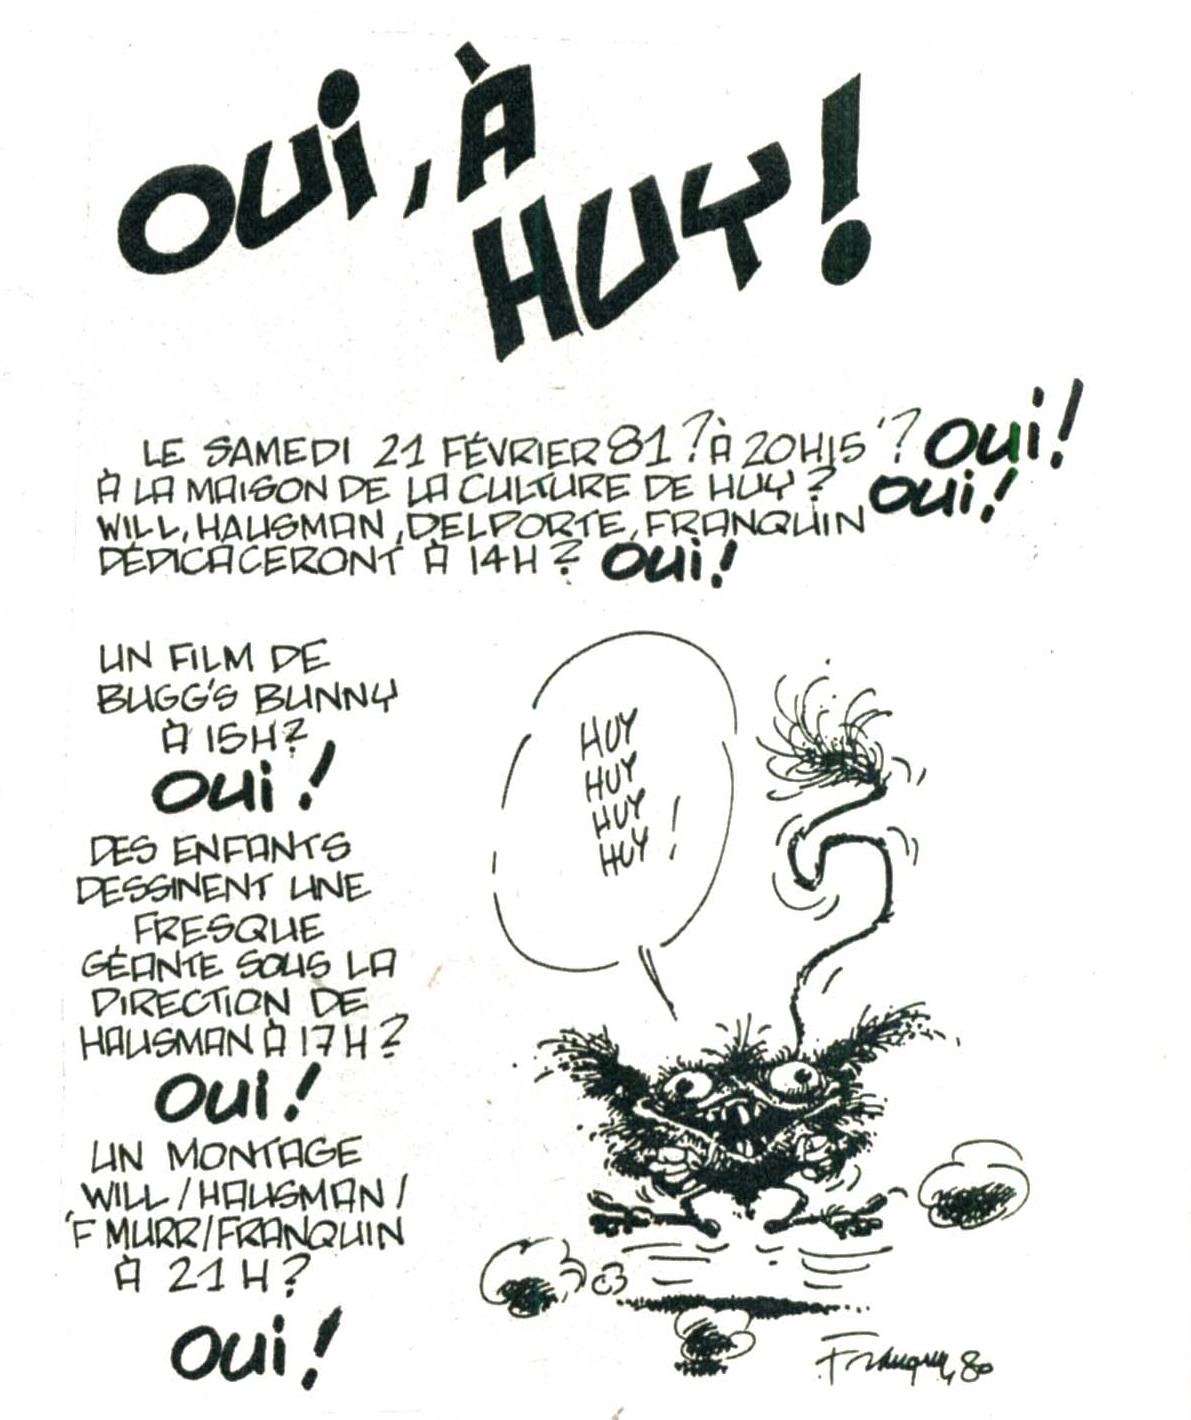 OUI, À
HUY!
LE SAMEDI 21 FÉVRIER 81? À 20H15'? OUI!
À LA MAISON DE LA CULTURE DE HUY? OUI!
WILL, HAUSMAN, DELPORTE, FRANQUIN
DÉDICACERONT À 14H? OUI!
UN FILM DE
BUGG'S BUNNY
À 15H?
OUI!
DES ENFANTS
DESSINENT UNE
FRESQUE
GÉANTE SOUS LA
DIRECTION DE
HAUSMAN À 17H?
OUI!
UN MONTAGE
WILL/HAUSMAN/
'F MURR/FRANQUIN
À 21H?
OUI!
HUY
HUY
HUY
HUY!
Franquin, 80